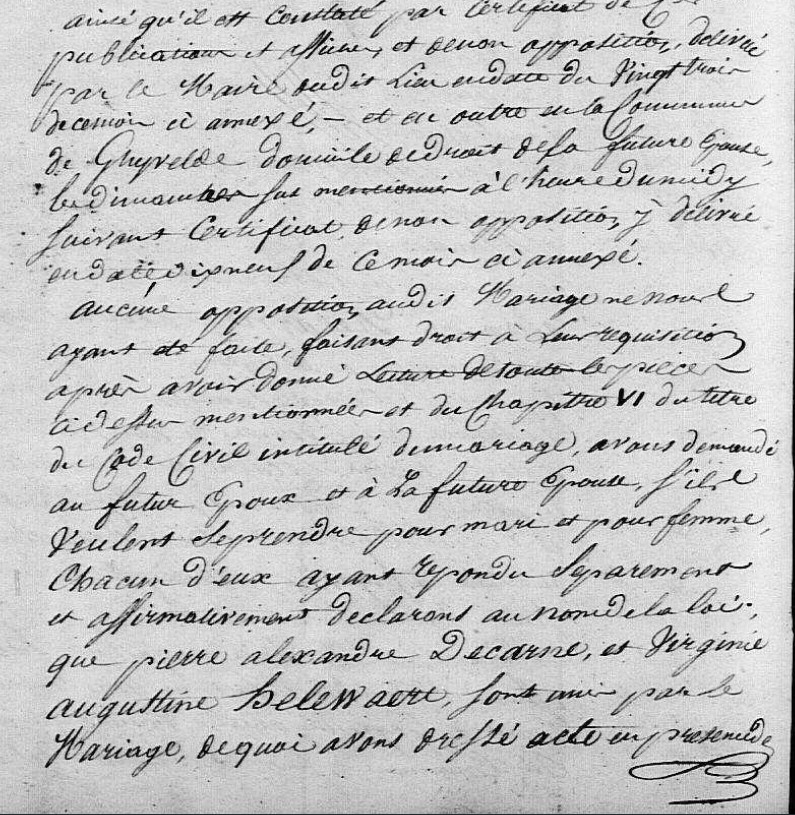 ainsi qu'il est constaté par certificat de
publication et affiche, et denon opposition, delivré
par le Maire dudit Lieu endate du Vingt trois
decemois ci annexé, – et en outre en la Commune
de Ghyvelde domicile dedroit dela future Epouse,
les dimanches sus mentionnés à l'heure dumidy
suivant Certificat denon opposition y délivré
endate dixneuf de cemois ci annexé.
aucune opposition audit Mariage ne nous
ayant été faite, faisant droit à Leur requisition
après avoir donné Lecture detoutes les pièces
cidessus mentionnées et du Chapitre VI du titre
du Code Civil intitulé dumariage, avons demandé
au futur Epoux et à La future Epouse, s'ils
Veulent seprendre pour mari et pour femme,
Chacun d'eux ayant repondu Separement
et affirmativement declarons au nom de la loi,
que pierre alexandre Decarne, et Virginie
augustine helewaert, sont unis par le
Mariage, dequoi avons dressé acte en presencede